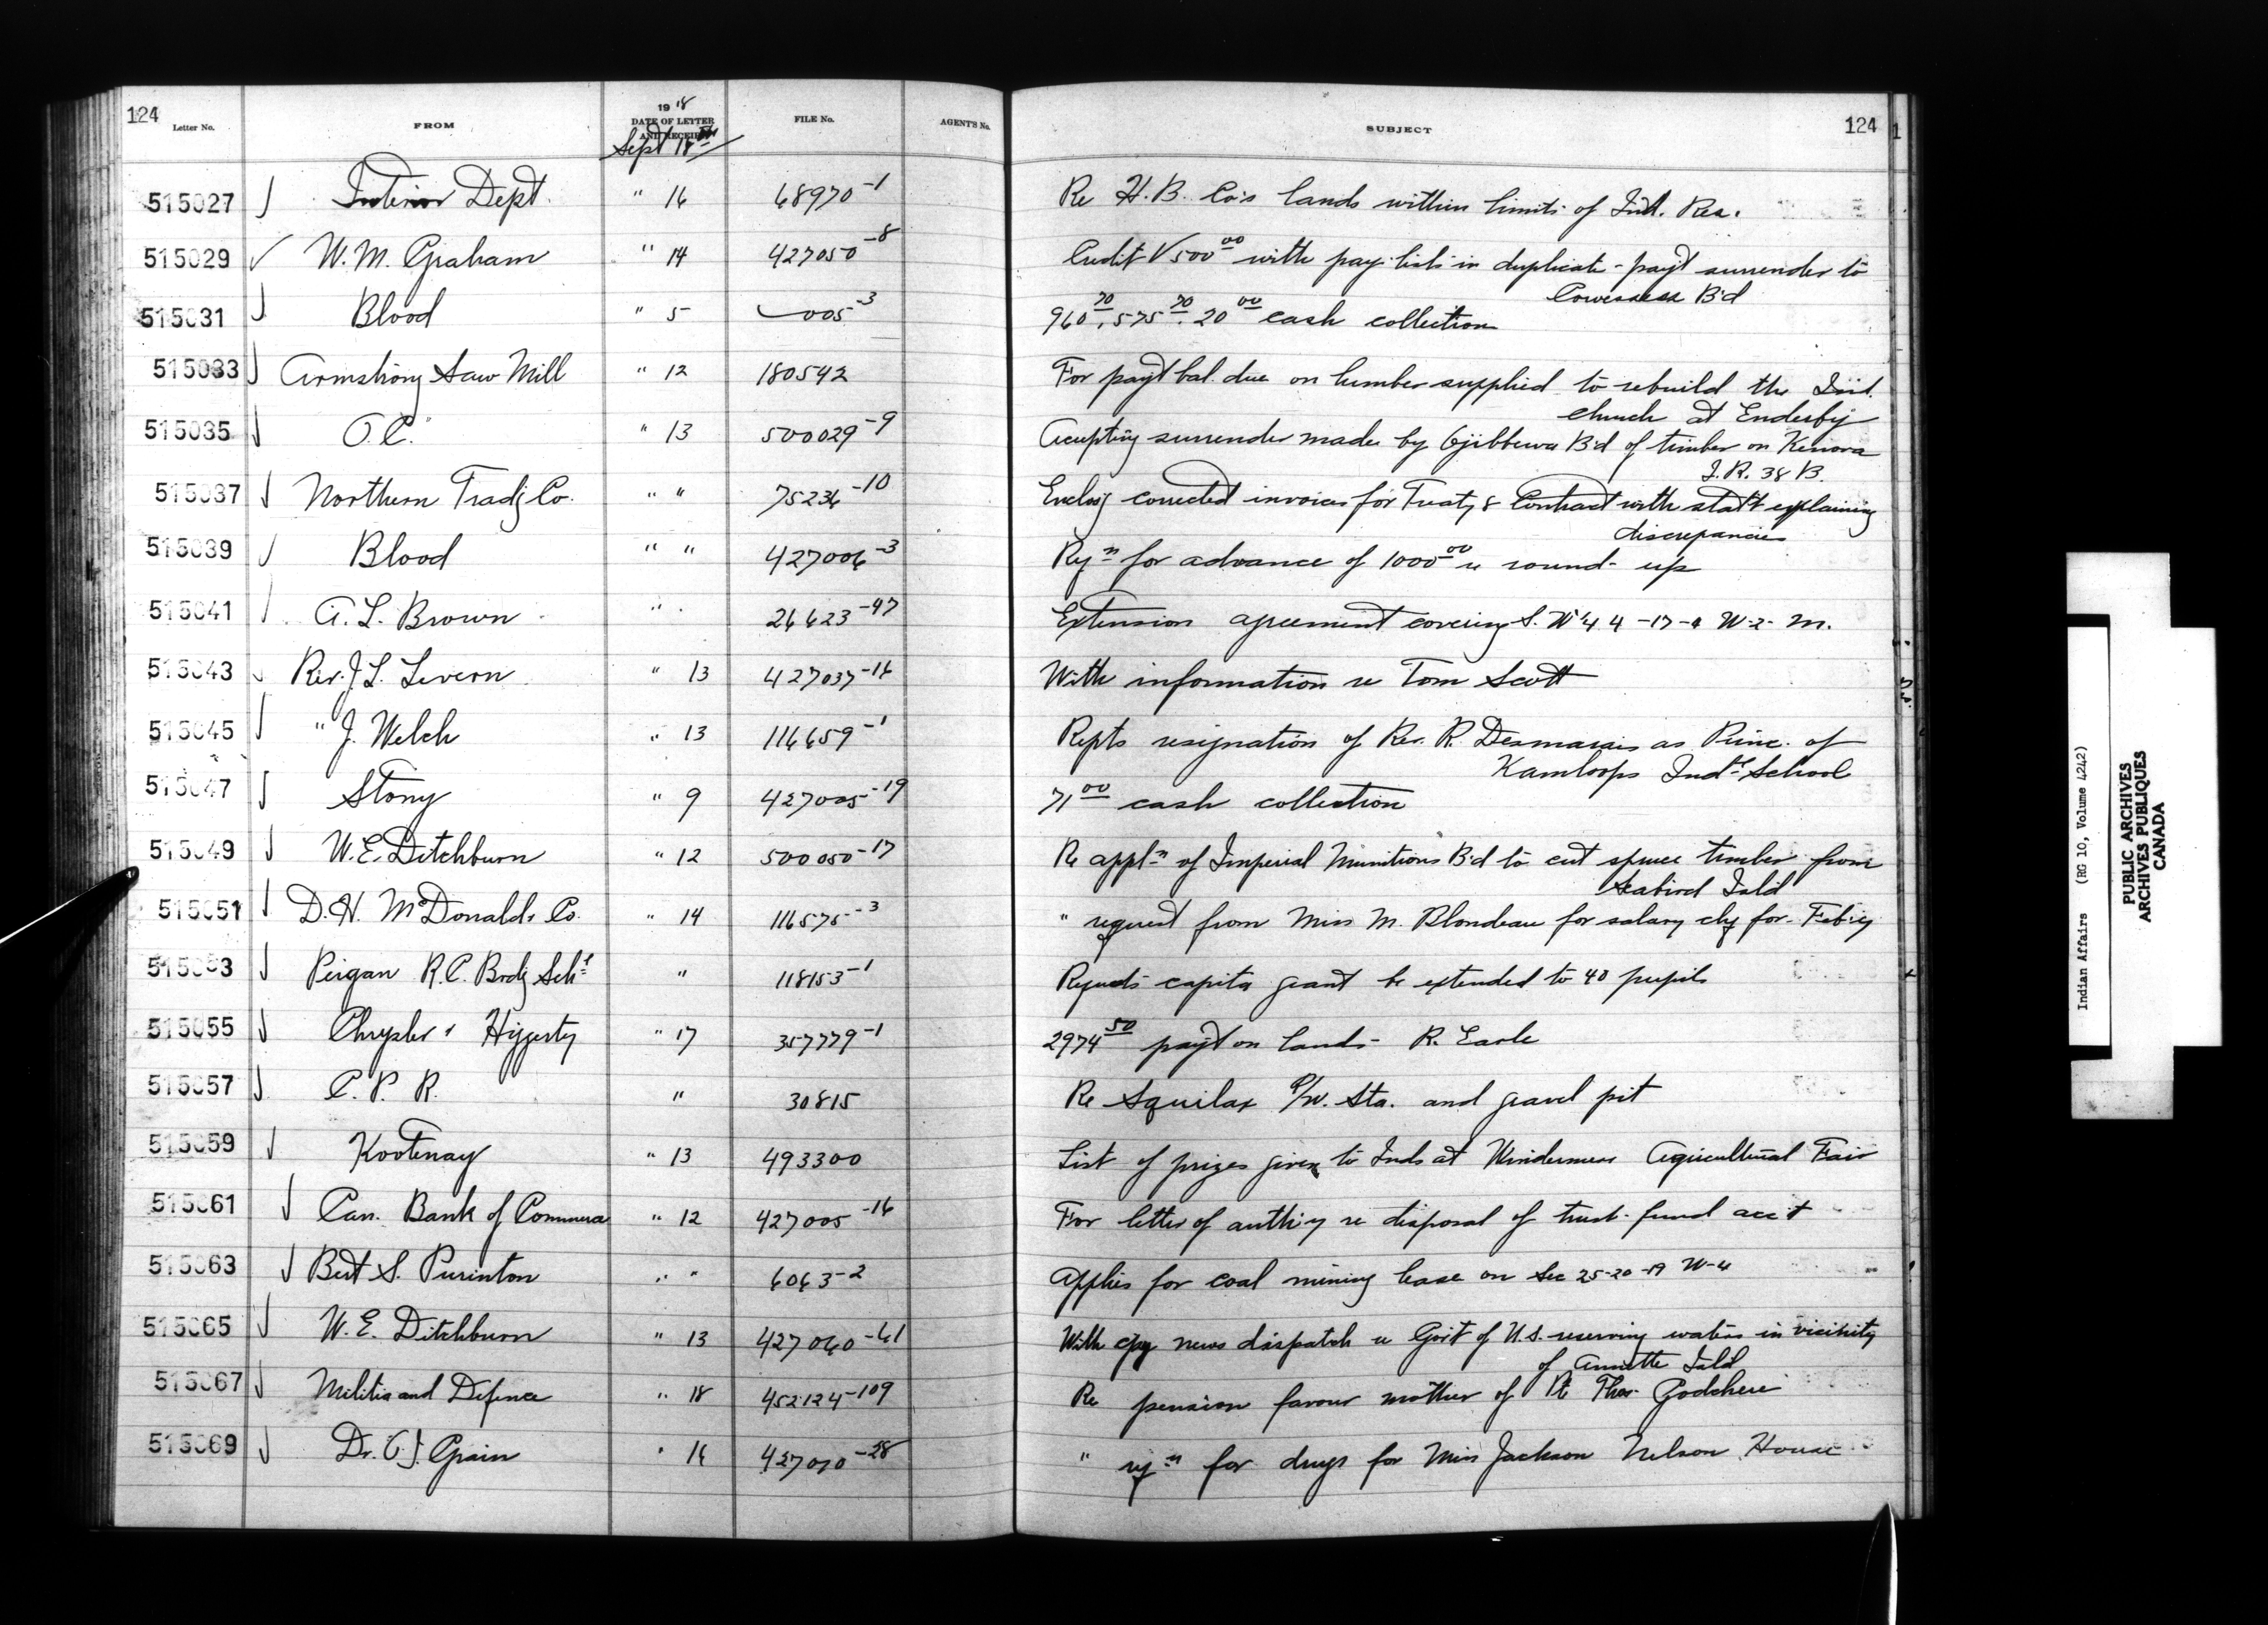 124 Letter No. FROM 19 18 DATE OF LETTER AND RECEIPT FILE No. AGENT'S No. SUBJECT 124
Sept 18th
515027 Interior Dept. " 16 68970-1 Re H.B. Co's lands within limits of Ind. Res.
515029 W.M. Graham " 14 427050-8 Credit V 500 00 with pay lists in duplicate - payt surrender to
Cowessess B'd
515031 Blood " 5 005-3 960 70, 575 70, 20 00 cash collection
515033 Armstrong Saw Mill " 12 180542 For payt bal. due on lumber supplied to rebuild the Ind.
church at Enderby
515035 O.C. " 13 500029-9 Accepting surrender made by Ojibbewa B'd of timber on Kenora
I.R. 38 B.
515037 Northern Tradg Co. " " 75236-10 Enclosg corrected invoices for Treaty & Contract with statt explaining
discrepancies
515039 Blood " " 427006-3 Rqn for advance of 1000 00 re round-up
515041 A.L. Brown " 26623-47 Extension agreement covering S.W ¼ 4-17-4 W-2-M.
515043 Rev. J.L. Levern " 13 427037-16 With information re Tom Scott
515045 " J. Welch " 13 116659-1 Repts resignation of Rev. R. Desmarais as Princ. of
Kamloops Indl School
515047 Stony " 9 427005-19 71 00 cash collection
515049 W.E. Ditchburn " 12 500050-17 Re appln of Imperial Munitions B'd to cut spruce timber from
Seabird Isld
515051 D.H. McDonald & Co. " 14 116575-3 " request from Miss M. Blondeau for salary chq for Feb'y
515053 Peigan R.C. Brdg Schl " 118153-1 Requests capita grant be extended to 40 pupils
515055 Chrysler & Higgerty " 17 357779-1 2974 50 payt on lands - R. Earle
515057 C.P.R. " 30815 Re Squilax P/W. Sta. and gravel pit
515059 Kootenay " 13 493300 List of prizes given to Inds at Windermere Agricultural Fair
515061 Can. Bank of Commerce " 12 427005-16 For letter of auth'y re disposal of trust fund acc't
515063 Bert S. Purinton " " 6063-2 Applies for coal mining lease on Sec 25-20-19 W-4
515065 W.E. Ditchburn " 13 427060-61 With cpy news dispatch re Gov't of U.S. reserving waters in vicinity
of Annette Isld
515067 Militia and Defence " 18 452124-109 Re pension favour mother of Pte Thos. Godchere
515069 Dr. O.J. Grain " 16 427010-28 " rqn for drugs for Miss Jackson Nelson House
Indian Affairs (RG 10, Volume 4242)
PUBLIC ARCHIVES
ARCHIVES PUBLIQUES
CANADA